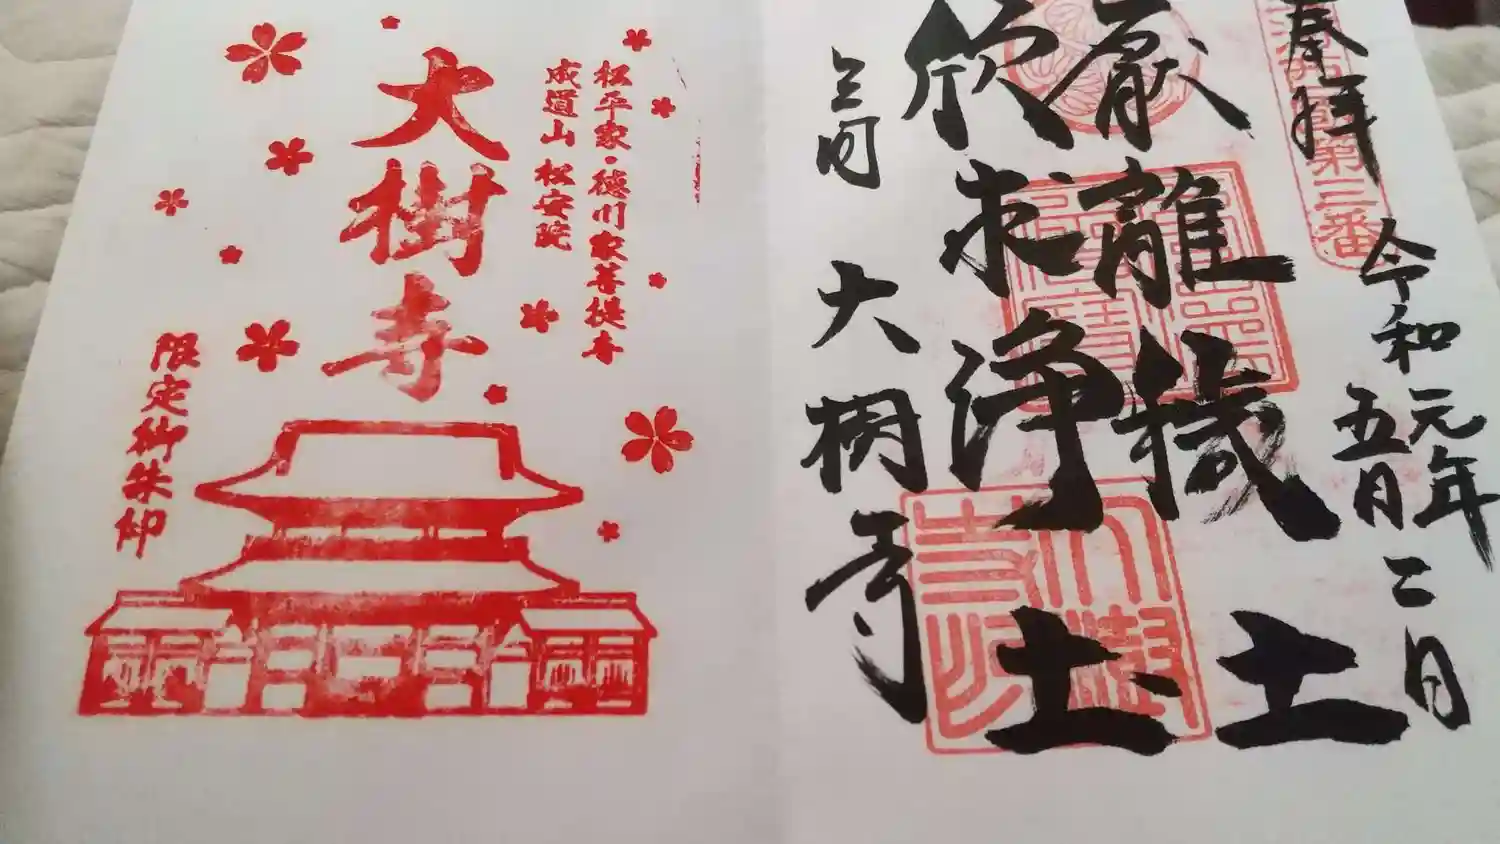 奉拝
令和元年
五月二日
厭離穢土
欣求浄土
三河
大樹寺
第三番
松平家・徳川家菩提寺
成道山 松安院
大樹寺
限定御朱印